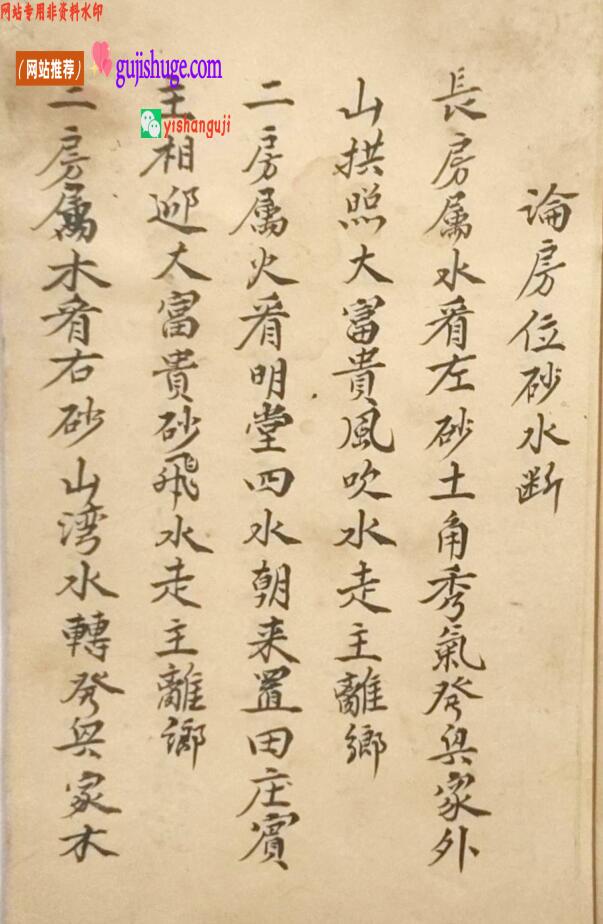 网站专用非资料水印
（网站推荐）
gujishuge.com
yishanguji
論房位砂水断
長房属水看左砂土角秀氣癸與家外
山拱照大富貴風吹水走主離鄉
二房属火看明堂四水朝来置田庄賓
主相迎大富貴砂飛水走主離鄉
二房属木看右砂山湾水轉癸與家木